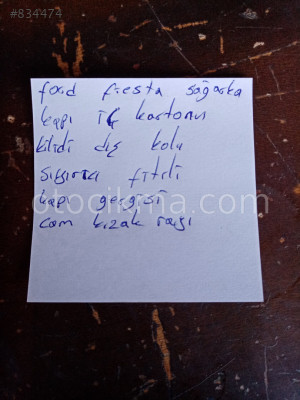 #834474
ford fiesta sağarka
kapı iç kartonu
kilidi dış kolu
sıyırıcı fitili
kapı gergisi
cam kızak rayı
otocikma.com